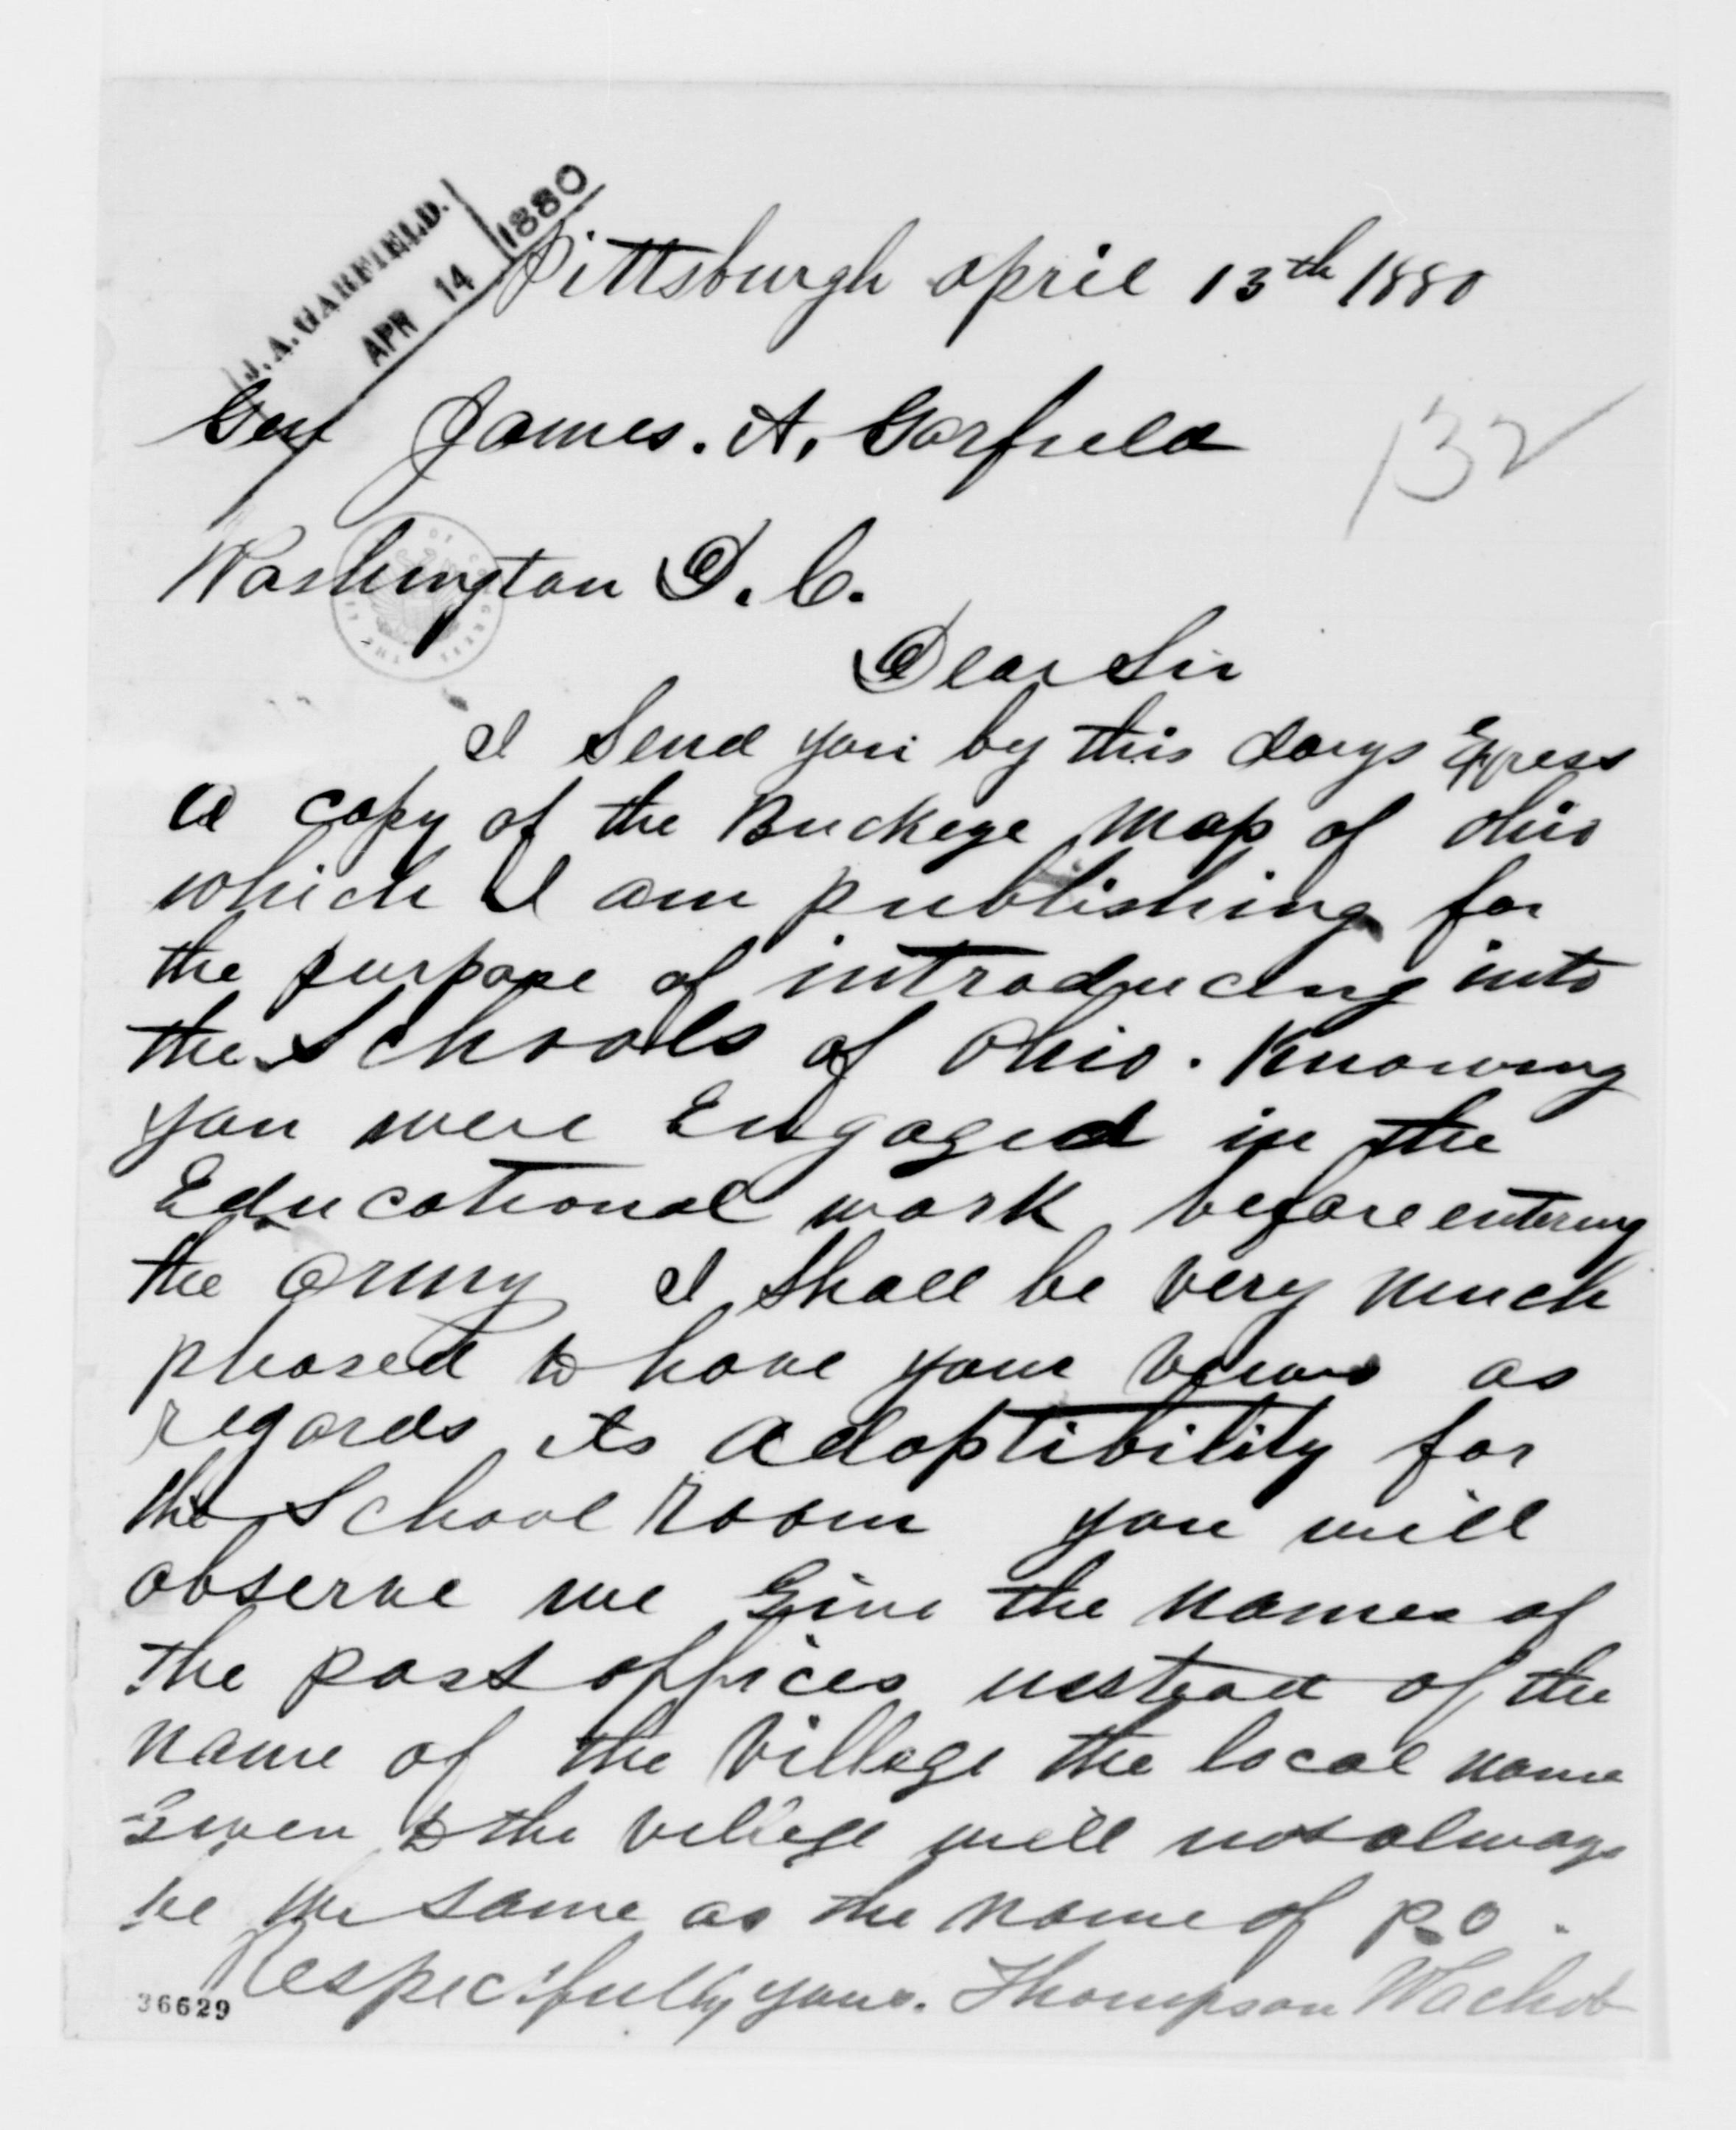 J. A. GARFIELD.
APR 14 1880
Pittsburgh april 13th 1880
Gen James. A. Garfield
132
Washington D. C.
Dear Sir
I Send you by this days Express
a copy of the Buckeye Map of Ohio
which I am publishing for
the purpose of introducing into
the Schools of Ohio. Knowing
you were Engaged in the
Educational work before entering
the army I shall be very much
pleased to have your views as
regards its adoptibility for
the School Room you will
observe we Give the names of
the post offices instead of the
name of the Village the local name
Given to the village will not always
be the same as the name of P.O.
Respectfully yours. Thompson Wachob
36629